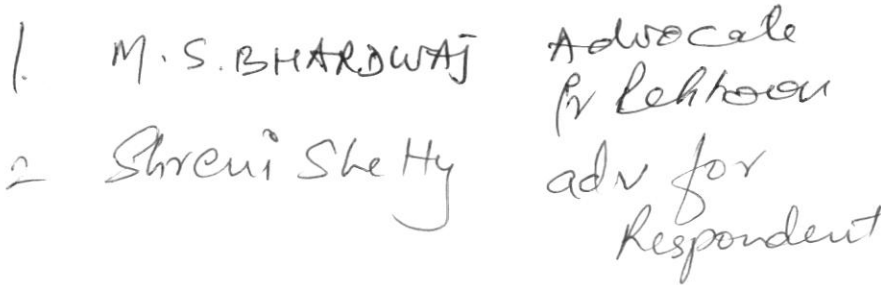 1. M. S. BHARDWAJ Advocate
for Petitioner
2 Shreni Shetty adv for
Respondent